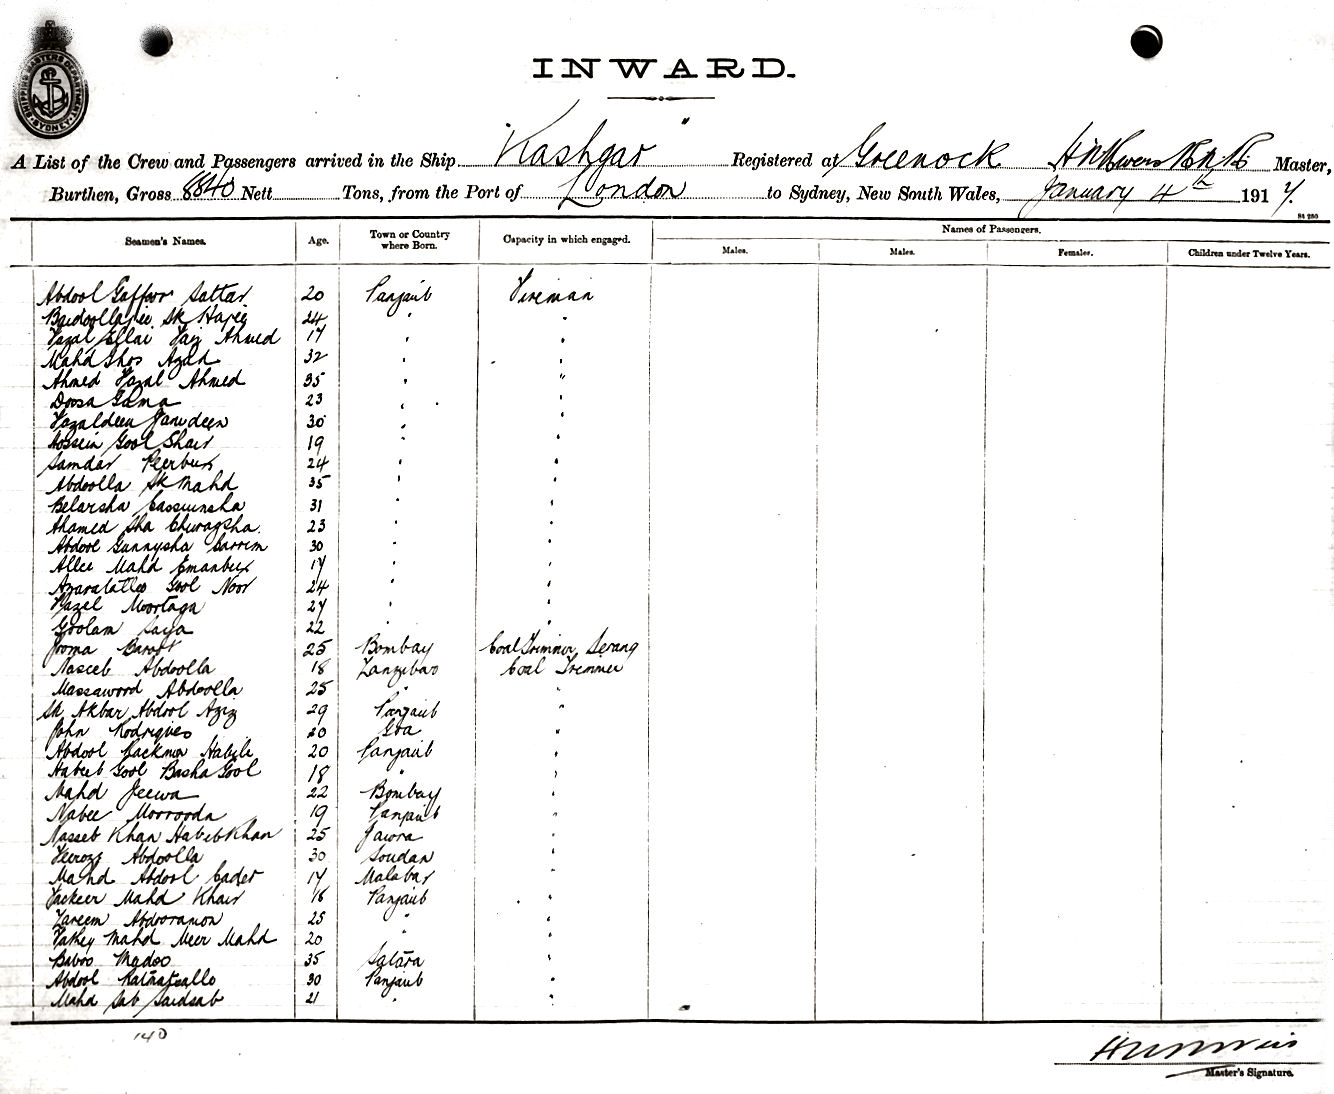 SHIPPING MASTERS DEPARTMENT SYDNEY
INWARD.
A List of the Crew and Passengers arrived in the Ship "Kashgar" Registered at Greenock Master,
Burthen, Gross 8840 Nett Tons, from the Port of London to Sydney, New South Wales, January 4th 1917.
Seamen's Names. Age. Town or Country where Born. Capacity in which engaged. Names of Passengers.
Males. Males. Females. Children under Twelve Years.
Abdool Gaffoor Sattar 20 Panjaub Fireman
Sk 24 " "
Fazal Ellai Ahmed 17 " "
Mahd 32 " "
Ahmed Fazal Ahmed 35 " "
Doosa Gama 23 " "
Fazaldeen 30 " "
Hossein Gool Shair 19 " "
Samdar Peerbux 24 " "
Abdoolla Sk Mahd 35 " "
Belarsha Cassumsha 31 " "
Ahamed Sha Chiragsha. 23 " "
Abdool Gunnysha 30 " "
Allee Mahd Emanbux 17 " "
Gool Noor 24 " "
Fazel Moortaza 27 " "
Goolam 22 " "
25 Bombay Coal Trimmer Serang
Naseeb Abdoolla 18 Zanzibar Coal Trimmer
Massawood Abdoolla 25 " "
Sk Akbar Abdool Aziz 29 Panjaub "
John Rodrigues 20 Goa "
Abdool 20 Panjaub "
Habeeb Gool Basha Gool 18 " "
Mahd Jeewa 22 Bombay "
Nabee 19 Panjaub "
Nasseb Khan Habeb Khan 25 Jawra "
Feeroze Abdoolla 30 Soudan "
Mahd Abdool Cader 17 Malabar "
Fackeer Mahd Khair 18 Panjaub "
Zareem Abdooramon 25 " "
Fakey Mahd Meer Mahd 20 " "
Baboo Madoo 35 Satara "
Abdool 30 Panjaub "
Mahd Sab Saidsab 21 " "
140
Master's Signature.